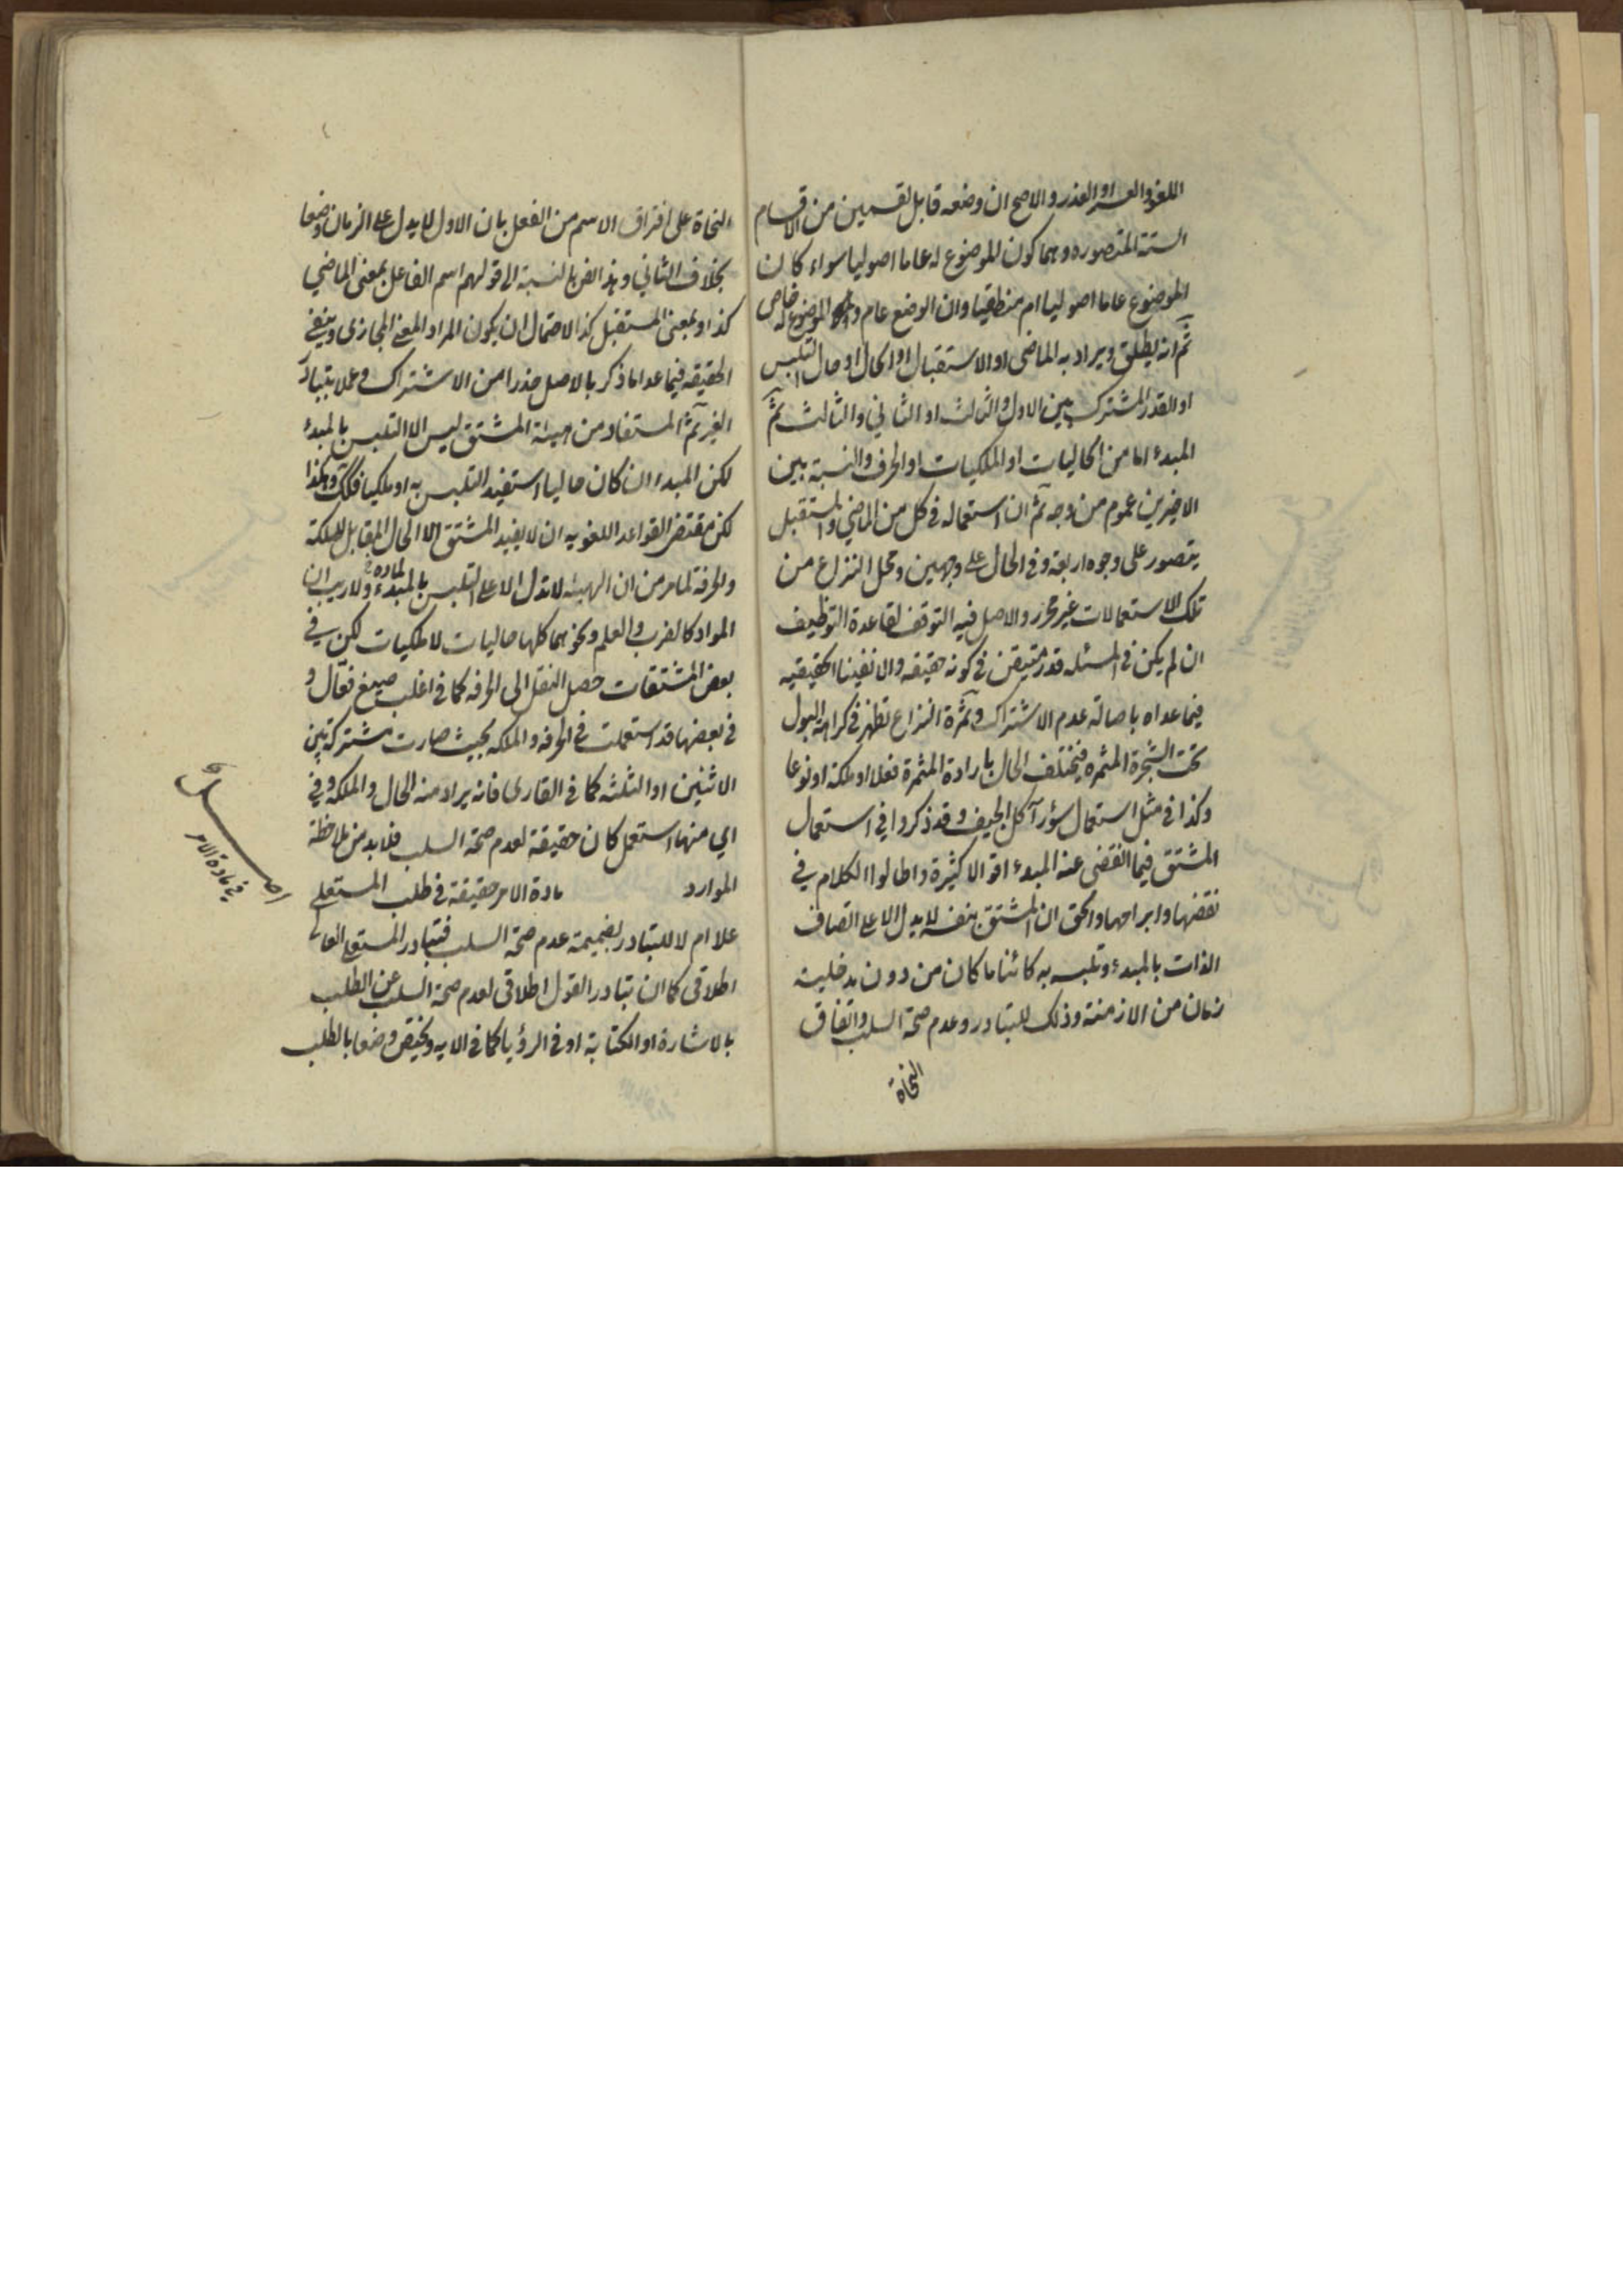 اللغز والعذر والاصح ان وضعه قابل لقسمين من الاقسام
الستة المتصوره وهما كون الموضوع له عاما اصوليا سواء كان
الموضوع عاما اصوليا ام منطقيا وان الوضع عام والموضوع له خاص
ثم انه يطلق ويراد به الماضى او الاستقبال او الحال او حال التلبس
او القدر المشترك بين الاول والثالث او الثاني والثالث ثم
المبدء اما من الحاليات او الملكيات او الحرف والنسبة بين
الاخيرين عموم من وجه ثم ان استعماله فى كل من الماضي والمستقبل
يتصور على وجوه اربعة وفى الحال على وجهين ومحل النزاع من
تلك الاستعمالات غير محرر والاصل فيه التوقف لقاعدة التوظيف
ان لم يكن فى المسئله قدر متيقن فى كونه حقيقه والا نفينا الحقيقيه
فيما عداه باصالة عدم الاشتراك وثمرة النزاع تظهر فى كراهة البول
تحت الشجرة المثمره فيختلف الحال بارادة المثمرة فعلا او ملكة او نوعا
وكذا فى مثل استعمال سؤر آكل الجيف وقد ذكروا في استعمال
المشتق فيما انقضى عنه المبدء اقوالا كثيرة واطالوا الكلام في
نقضها وابرامها والحق ان المشتق بنفسه لا يدل الا على اتصاف
الذات بالمبدء وتلبسه به كائنا ما كان من دون مدخلية
زمان من الازمنة وذلك للتبادر وعدم صحة السلب واتفاق
النحاة
النحاة على افتراق الاسم من الفعل بان الاول لا يدل على الزمان وضعا
بخلاف الثاني وهذا الفن بالنسبة الى قولهم اسم الفاعل بمعنى الماضي
كذا وبمعنى المستقبل كذا لاحتمال ان يكون المراد المعنى المجازى وينفى
الحقيقه فيما عدا ما ذكر بالاصل حذرا من الاشتراك وعملا بتبادر
الغير ثم المستفاد من هيئة المشتق ليس الا التلبس بالمبدء
لكن المبدء ان كان حاليا استفيد التلبس به او ملكيا فكك وهكذا
لكن مقتضى القواعد اللغويه ان لا يفيد المشتق الا الحال المقابل للملكة
والحرفة لما مر من ان الهيئه لا تدل الا على التلبس بالمبدء ولا ريب ان
المواد كالضرب والعلم ونحوهما كلها حاليات لا ملكيات لكن في
بعض المشتقات حصل النقل الى الحرفه كما فى اغلب صيغ فعّال و
فى بعضها قد استعملت فى الحرفه والملكه بحيث صارت مشتركة بين
الاثنين او الثلثه كما فى القارى فانه يراد منه الحال والملكه وفي
اي منها استعمل كان حقيقة لعدم صحة السلب فلا بد من ملاحظة
الموارد مادة الامر حقيقة فى طلب المستعلى
علا ام لا للتبادر بضميمة عدم صحة السلب فتبادر المستعلى العالي
اطلاقى كما ان تبادر القول اطلاقى لعدم صحة السلب عن الطلب
بالاشارة او الكتابة او فى الرؤيا كما فى الايه ويختص وضعا بالطلب
اصل
فى مادة الامر